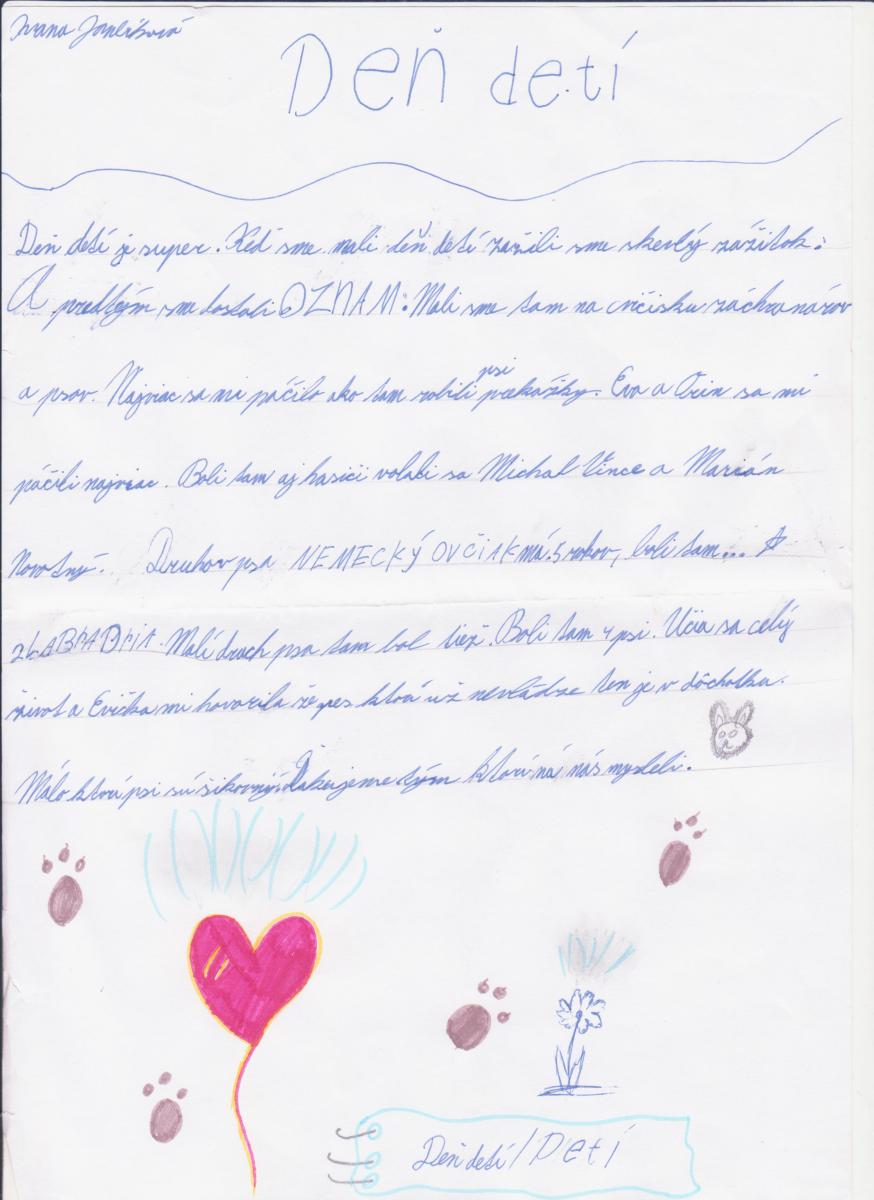 Ivana
Deň detí
Deň detí je super. Keď sme mali deň detí zažili sme skevlý zážitok.
A predtým sme dostali OZNAM. Mali sme tam na cvičisku záchranárov
a psov. Najviac sa mi páčilo ako tam robili psi prekážky. Eva a Orin sa mi
páčili najviac. Boli tam aj hasiči volali sa Michal Vince a Marián
Novotný. Druhov psa NEMECKÝ OVČIAK má 5 rokov, boli tam...
2 Malí druch psa tam bol tiež. Boli tam 4 psi. Učia sa celý
život a Evička mi hovorila že pes ktorí už nevládze ten je v dôchotku.
Málo ktorí psi sú šikovný. Ďakujeme tým ktorí ná nás mysleli.
Deň detí / Detí